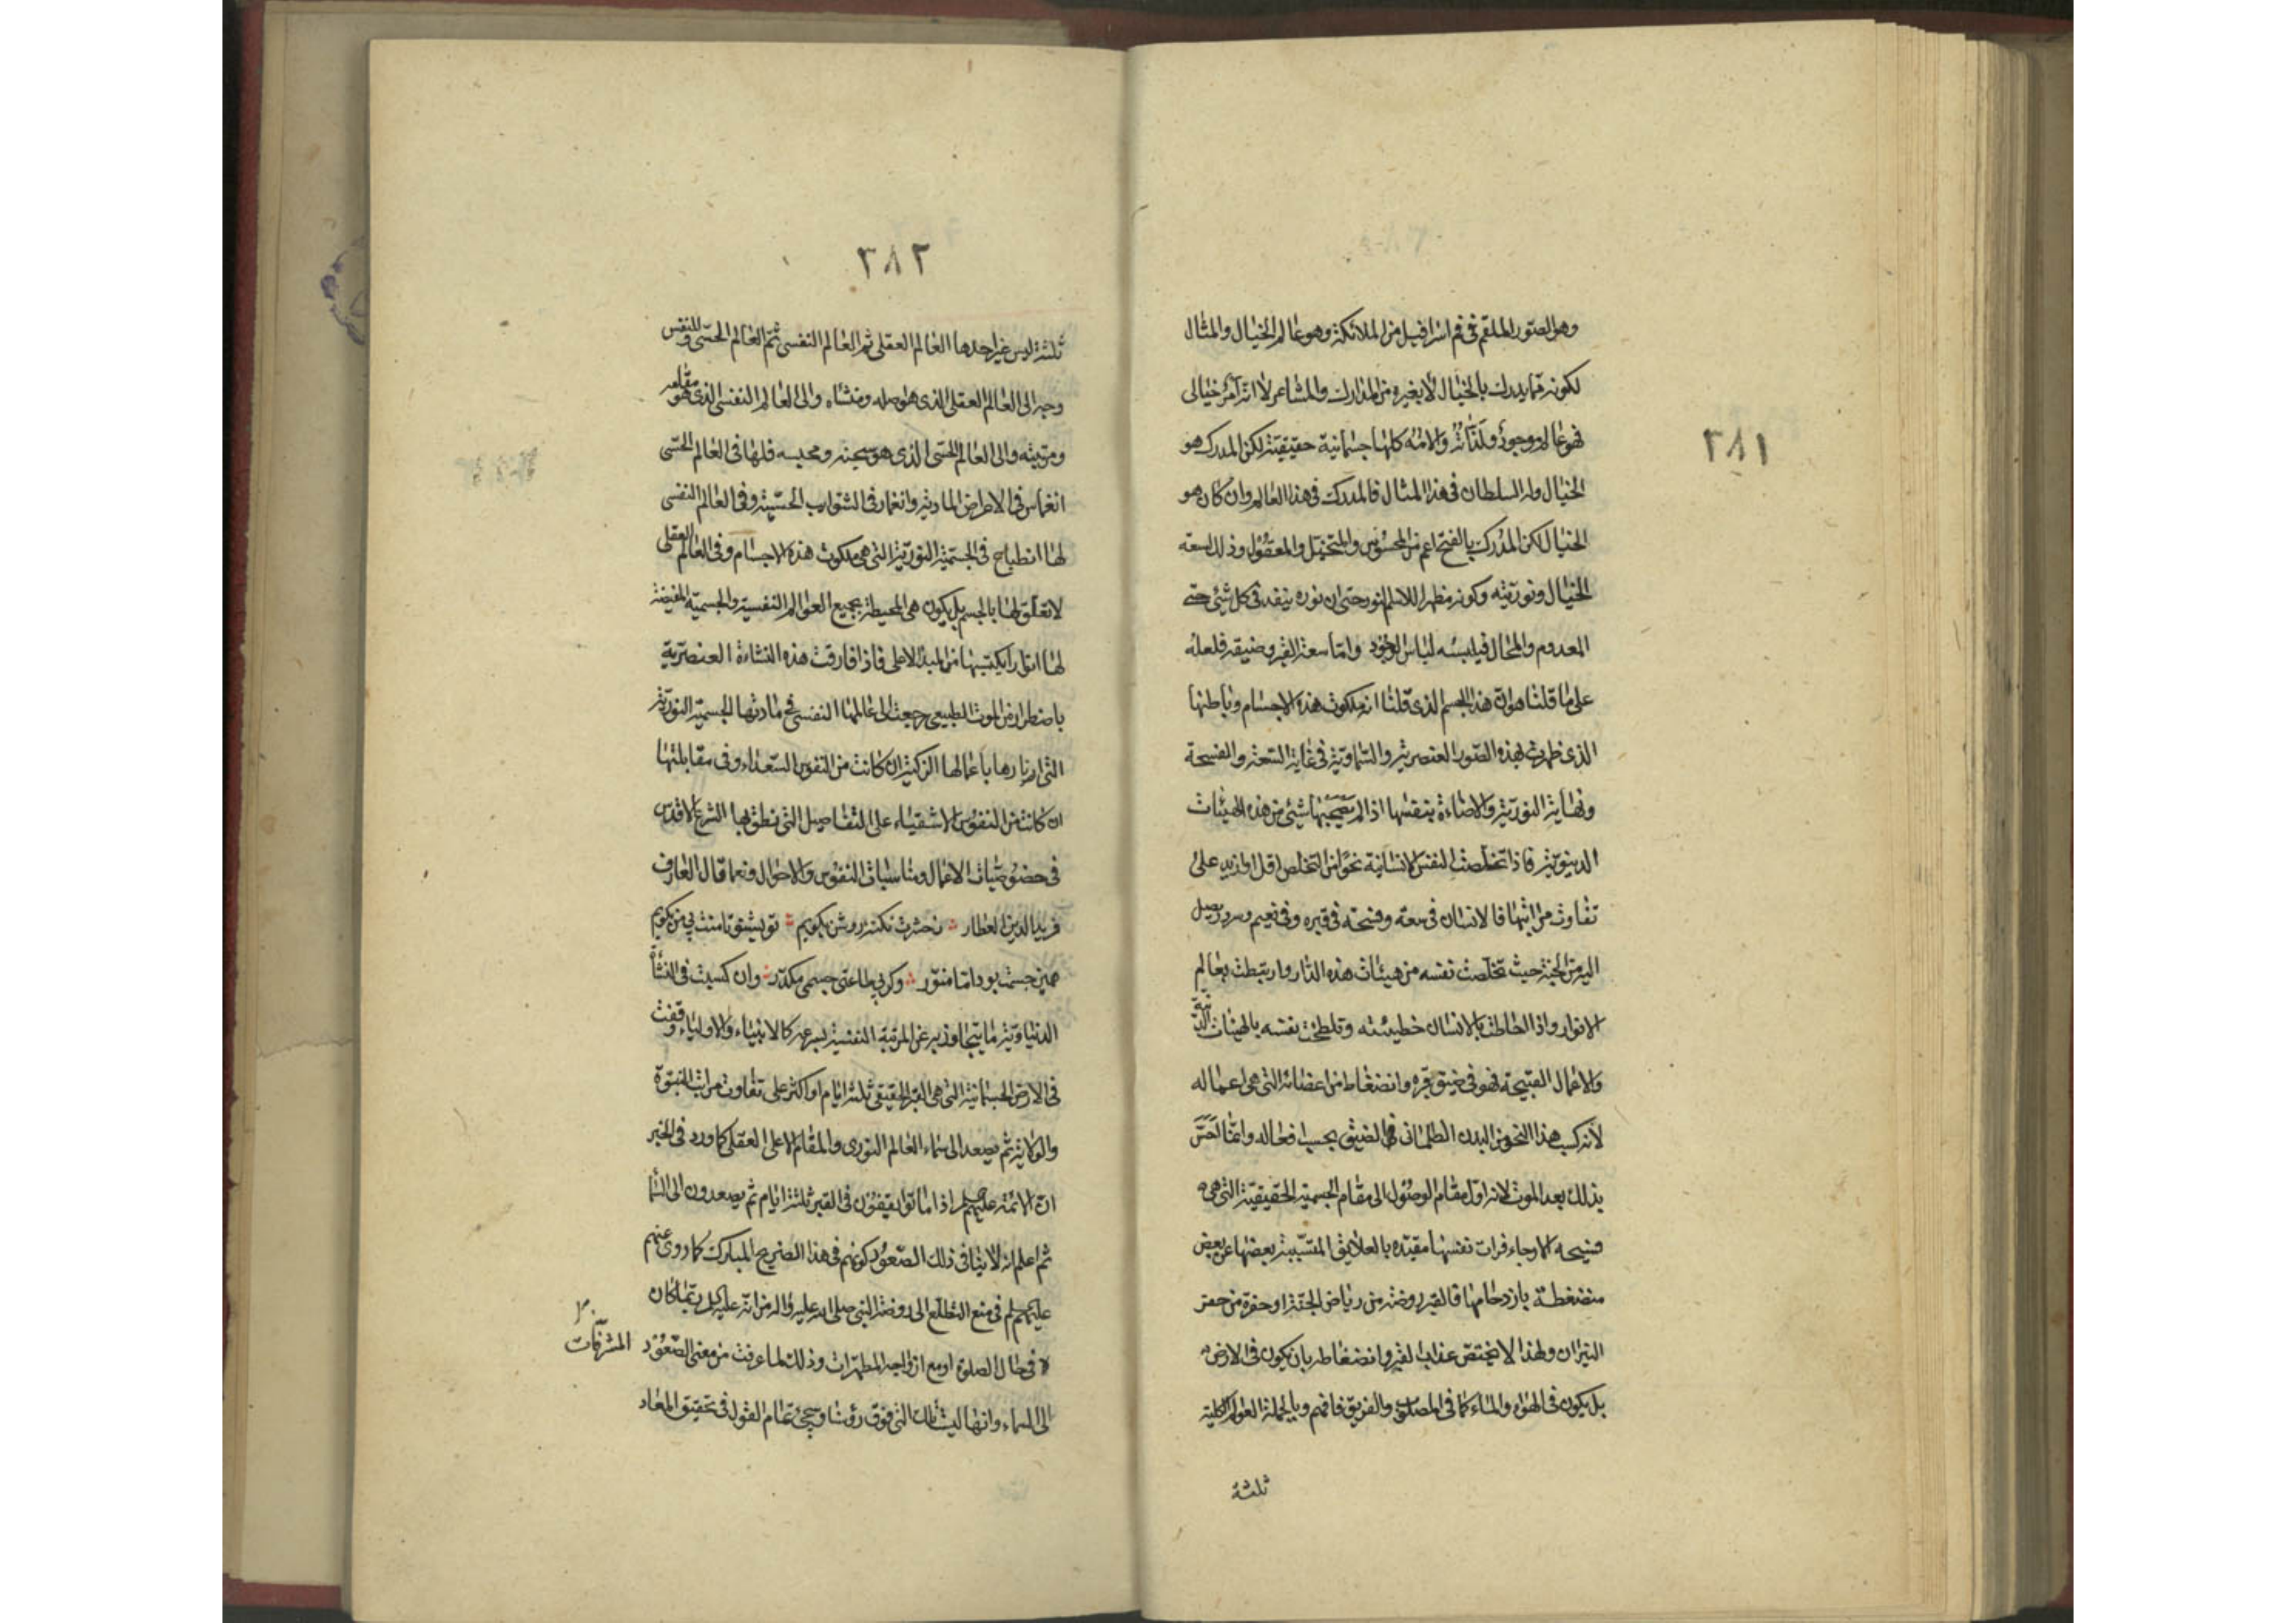 ٣٨١
وهو الصّور الملقم فی فم اسرافیل من الملائکة وهو عالم الخیال والمثال
لکونه ممّا یدرک بالخیال لا بغیره من المدارک والمشاعر لا انّه امر خیالی
فهو عالم موجود ولذّاته والامه کلها جسمانیة حقیقیّة لکن المدرک هو
الخیال وله السلطان فی هذا المثال فالمدرک فی هذا العالم وان کان هو
الخیال لکن المدرک بالفتح اعم من المحسوس والمتخیّل والمعقول وذلک لسعة
الخیال ونوریّته وکونه مظهرا للاسم النور حتی ان نوره ینفد فی کل شیٔ حتی
المعدوم والمحال فیلبسه لباس الوجود وامّا سعة القبر وضیقه فلعله
علی ما قلنا هو انّ هذا الجسم الذی قلنا انه ملکوت هذه الاجسام وباطنها
الذی ظهرت بهذه الصّور العنصریة والسّماویّة فی غایة السّعة والفسحة
ونهایة النوریّة والاضاءة بنفسها اذا لم یصحبها شیٔ من هذه الهیئات
الدنیویّة فاذا تخلّصت النفس الانسانیة نحوا من التخلّص اقل او ازید علی
تفاوت مراتبها فالانسان فی سعة وفسحة فی قبره وفی نعیم وسرور یصل
الیه من الجنة حیث تخلّصت نفسه من هیئات هذه الدّار وارتبطت بعالم
الانوار واذا احاطت بالانسان خطیئته وتلطّخت نفسه بالهیئات الدّنیّة
والاعمال القبیحة فهو فی ضیق قبره وانضغاط من اعضائه التی هی اعماله
لانّه کسب هذا النحو من البدن الظلمانی فی الضیق بحسب افعاله وانما احسّ
بذلک بعد الموت لانه اوّل مقام الوصول الی مقام الجسمیة الحقیقیّة التی هی
فسیحة الارجاء فرات نفسها مقیّده بالعلایق المتسبّبة بعضها عن بعض
منضغطة بازدحامها فالقبر روضة من ریاض الجنّة او حفرة من حفر
النیران ولهذا لا یختصّ عذاب القبر وانضغاطه بان یکون فی الارض
بل یکون فی الهواء والماء کما فی المصلوب والغریق فافهم وبالجملة العوالم الکلیة
ثلثة
٣٨٢
ثلثة لیس غیر احدها العالم العقلی ثم العالم النفسی ثمّ العالم الحسّی وللنفس
وجه الی العالم العقلی الذی هو اصله ومنشاه والی العالم النفسی الذی هو مقامه
ومرتبته والی العالم الحسّی الذی هو سجنه ومحبسه فلها فی العالم الحسّی
انغماس فی الامراض المادیة وانغمار فی الشوایب الحسّیّة وفی العالم النفسی
لها انطباع فی الجسمیّة النوریّة التی هی ملکوت هذه الاجسام وفی العالم العقلی
لا تعلّق لها بالجسم بل یکون هی المحیطة بجمیع العوالم النفسیة والجسمیّة المفیضة
لها انوارا یکتسبها من المبدء الاعلی فاذا فارقت هذه النشاءة العنصریة
باضطرار من الموت الطبیعی رجعت الی عالمها النفسی فی مادتها الجسمیّة النوریّة
التی انارها باعمالها الزکیة ان کانت من النفوس السّعداء وفی مقابلتها
ان کانت من النفوس الاشقیاء علی التفاصیل التی نطق بها الشرع الاقدس
فی خصوصیّات الاعمال ومناسبات النفوس والاحوال ونعما قال العارف
فرید الدین العطار ز حشرت نکتهٔ روشن بگویم تو بشنو تا منت بی من بگویم
همین جسمت بود اما منوّر وگر بی طاعتی جسمی مکدّر وان کسبت فی النشأة
الدنیاویّة ما یتجاوز به عن المرتبة النفسیة بسرعة کالانبیاء والاولیاء وقفت
فی الارض الجسمانیة التی هی القبر الحقیقی ثلثة ایام او اکثر علی تفاوت مراتب النبوّة
والولایة ثم یصعد الی سماء العالم النوری والمقام الاعلی العقلی کما ورد فی الخبر
انّ الائمة علیهم السلام اذا ماتوا یقفون فی القبر ثلثة ایام ثم یصعدون الی السّما
ثم اعلم انّه لا ینافی ذلک الصّعود کونهم فی هذا الضریح المبارک کما روی عنهم
علیهم السلام فی منع التطلّع الی روضة النبی صلی الله علیه واله من انّه علیه السلام ربّما کان
فی حال الصلوة او مع ازواجه المطهّرات وذلک لما عرفت من معنی الصّعود
المشرّفات
الی السماء وانها لیست تلک التی فوق رؤسنا وسیجیٔ تمام القول فی تحقیق المعاد